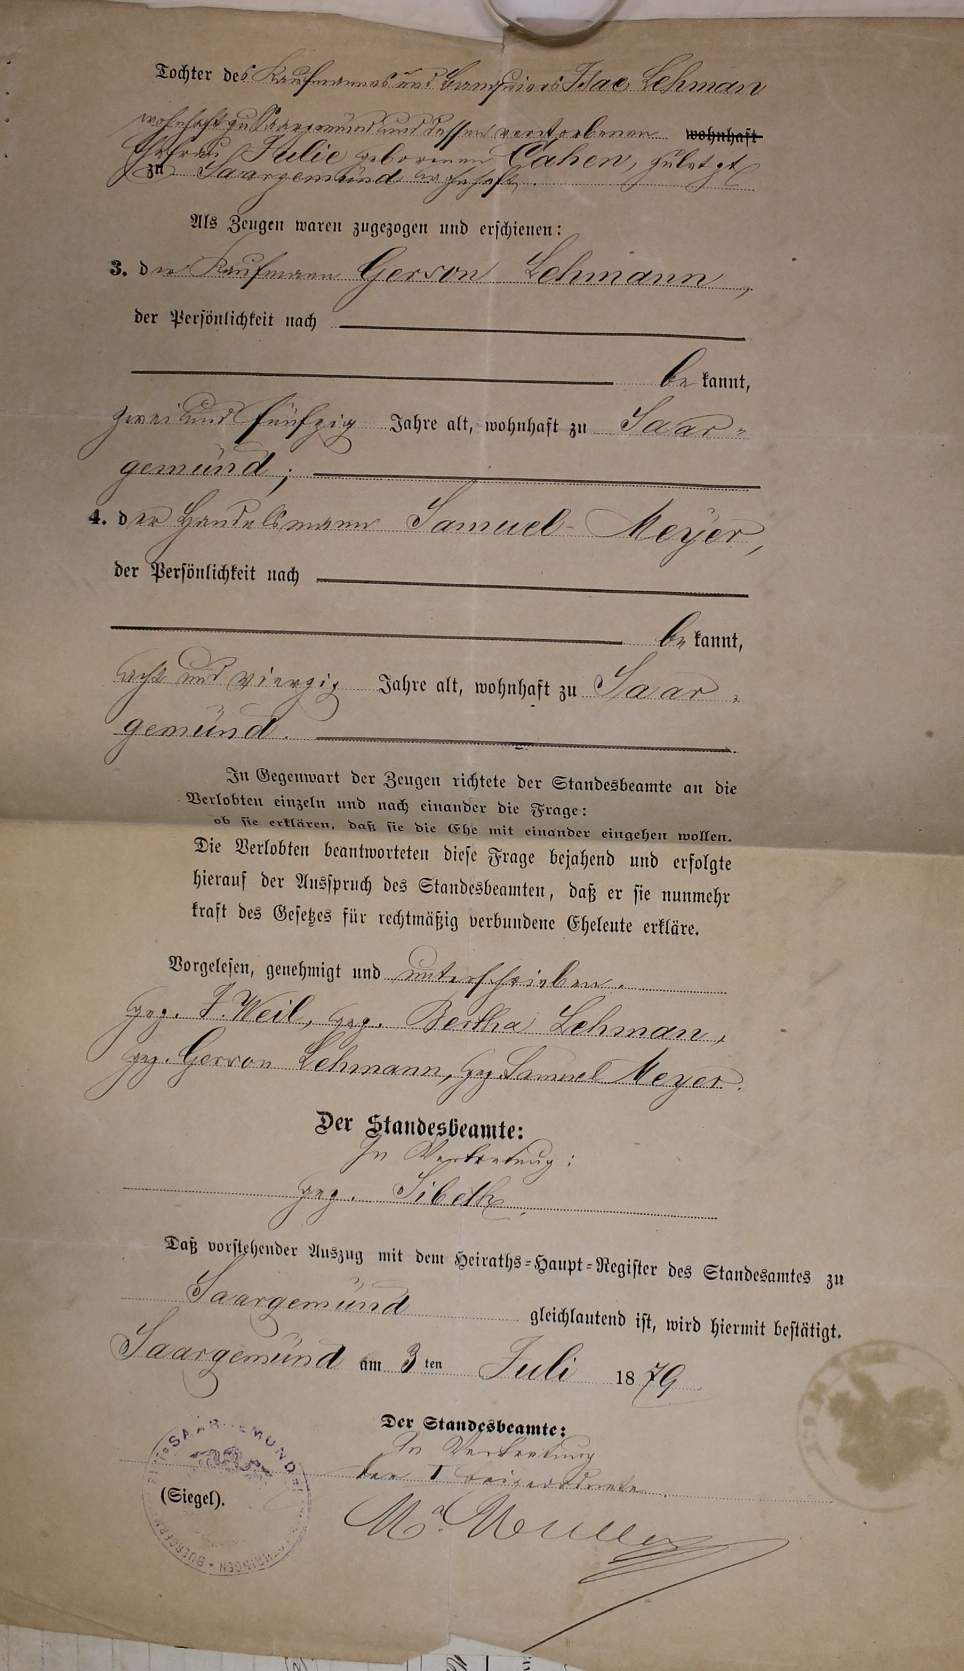 Tochter des Kaufmannes und Banquiers Isac Lehman
wohnhaft zu Saargemünd und dessen verstorbenen wohnhaft
Ehefrau Julie geborenen Cahen, zuletzt
zu Saargemünd wohnhaft.
Als Zeugen waren zugezogen und erschienen:
3. der Kaufmann Gerson Lehmann,
der Persönlichkeit nach
be kannt,
zwei und fünfzig Jahre alt, wohnhaft zu Saar-
gemünd;
4. der Handelsmann Samuel Meyer,
der Persönlichkeit nach
be kannt,
acht und vierzig Jahre alt, wohnhaft zu Saar-
gemünd.
In Gegenwart der Zeugen richtete der Standesbeamte an die
Verlobten einzeln und nach einander die Frage:
ob sie erklären, daß sie die Ehe mit einander eingehen wollen.
Die Verlobten beantworteten diese Frage bejahend und erfolgte
hierauf der Ausspruch des Standesbeamten, daß er sie nunmehr
kraft des Gesetzes für rechtmäßig verbundene Eheleute erkläre.
Vorgelesen, genehmigt und unterschrieben.
gez. J. Weil, gez. Bertha Lehman,
gez. Gerson Lehmann, gez. Samuel Meyer.
Der Standesbeamte:
In Vertretung:
gez. Sibeth.
Daß vorstehender Auszug mit dem Heiraths-Haupt-Register des Standesamtes zu
Saargemünd gleichlautend ist, wird hiermit bestätigt.
Saargemünd am 3ten Juli 1879
Der Standesbeamte:
In Vertretung
SAARGEMÜND
(Siegel).